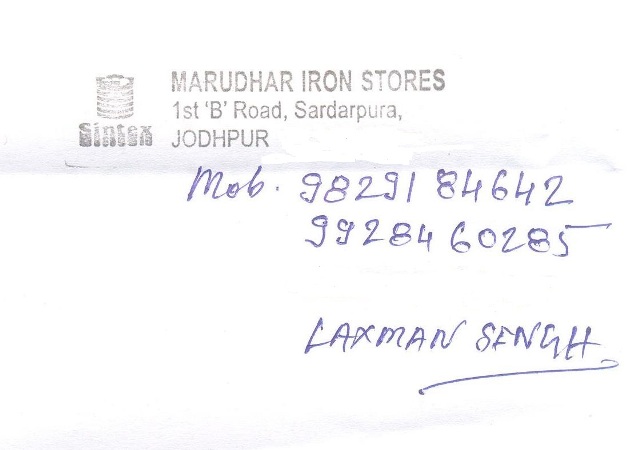 MARUDHAR IRON STORES
1st 'B' Road, Sardarpura,
Sintex JODHPUR
Mob. 98291 84642
99284 60285
LAXMAN SINGH